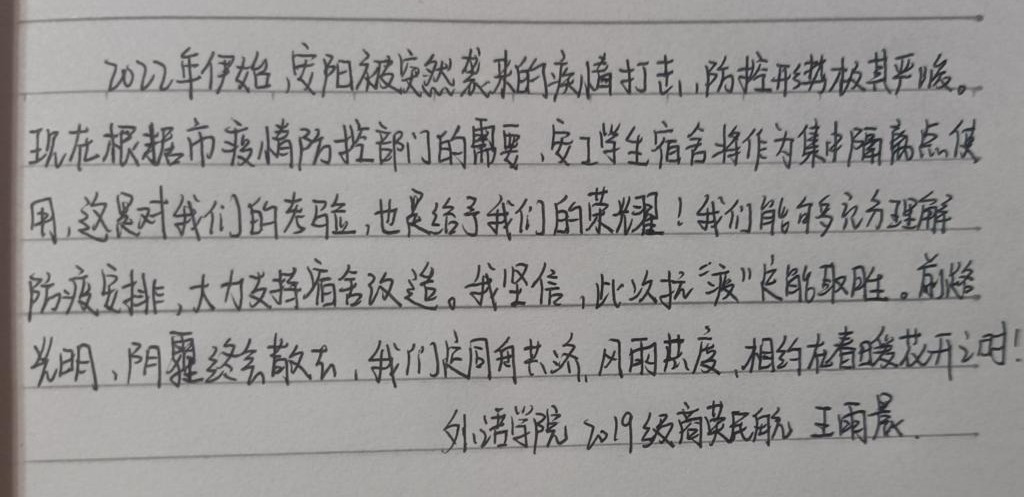 2022年伊始,安阳被突然袭来的疫情打击,防控形势极其严峻。
现在根据市疫情防控部门的需要,安工学生宿舍将作为集中隔离点使
用,这是对我们的考验,也是给予我们的荣耀!我们能够充分理解
防疫安排,大力支持宿舍改造。我坚信,此次抗“疫”定能取胜。前路
光明、阴霾终会散去,我们定同舟共济,风雨共度,相约在春暖花开之时!
外语学院 2019级商英民航 王雨晨.